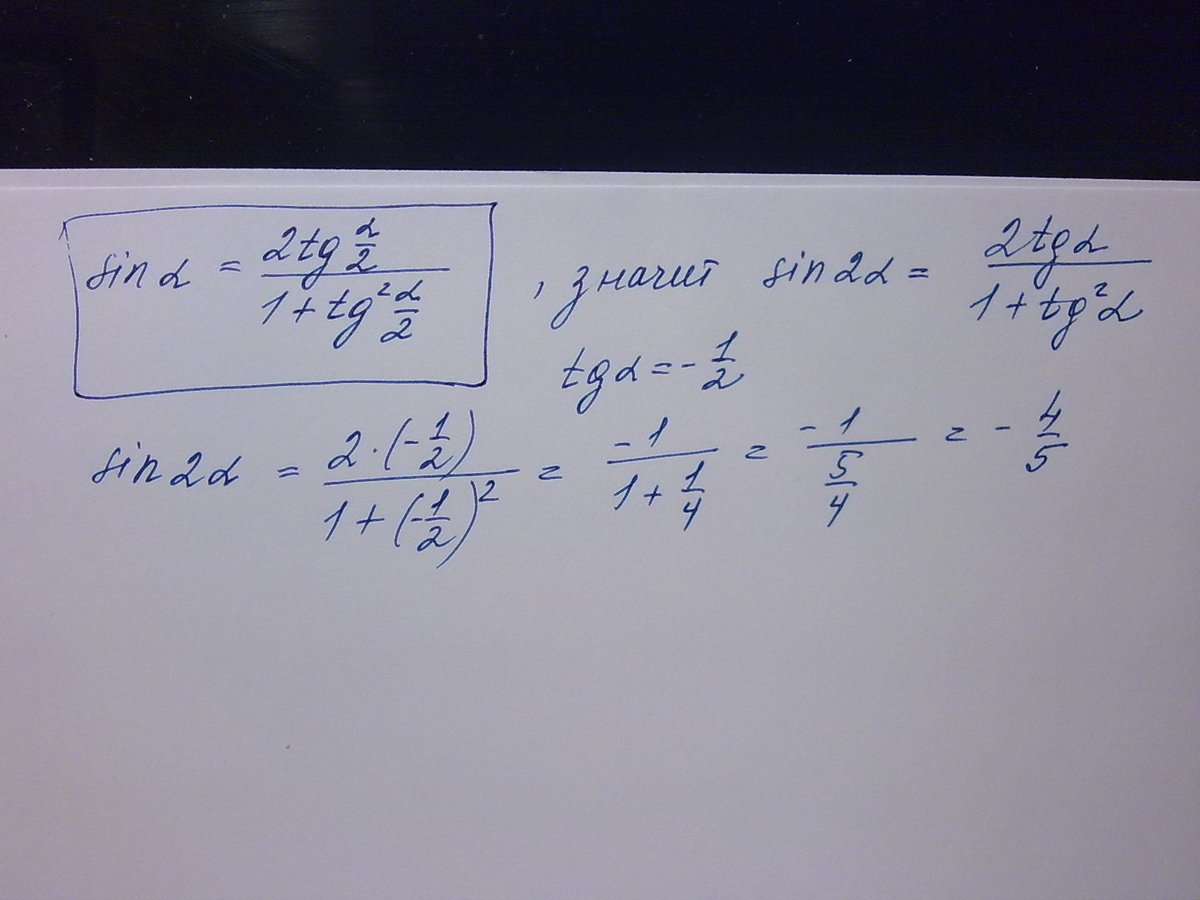 sin α = (2tg α/2)/(1 + tg² α/2) , значит sin 2α = (2tg α)/(1 + tg² α)
tg α = - 1/2
sin 2α = (2·(-1/2))/(1 + (-1/2)²) = (-1)/(1 + 1/4) = (-1)/(5/4) = - 4/5